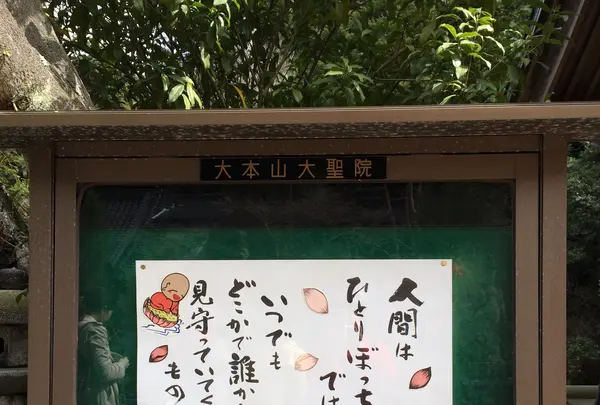 大本山大聖院
人間は
ひとりぼっち
では
いつでも
どこかで誰か
見守っていてく
もの